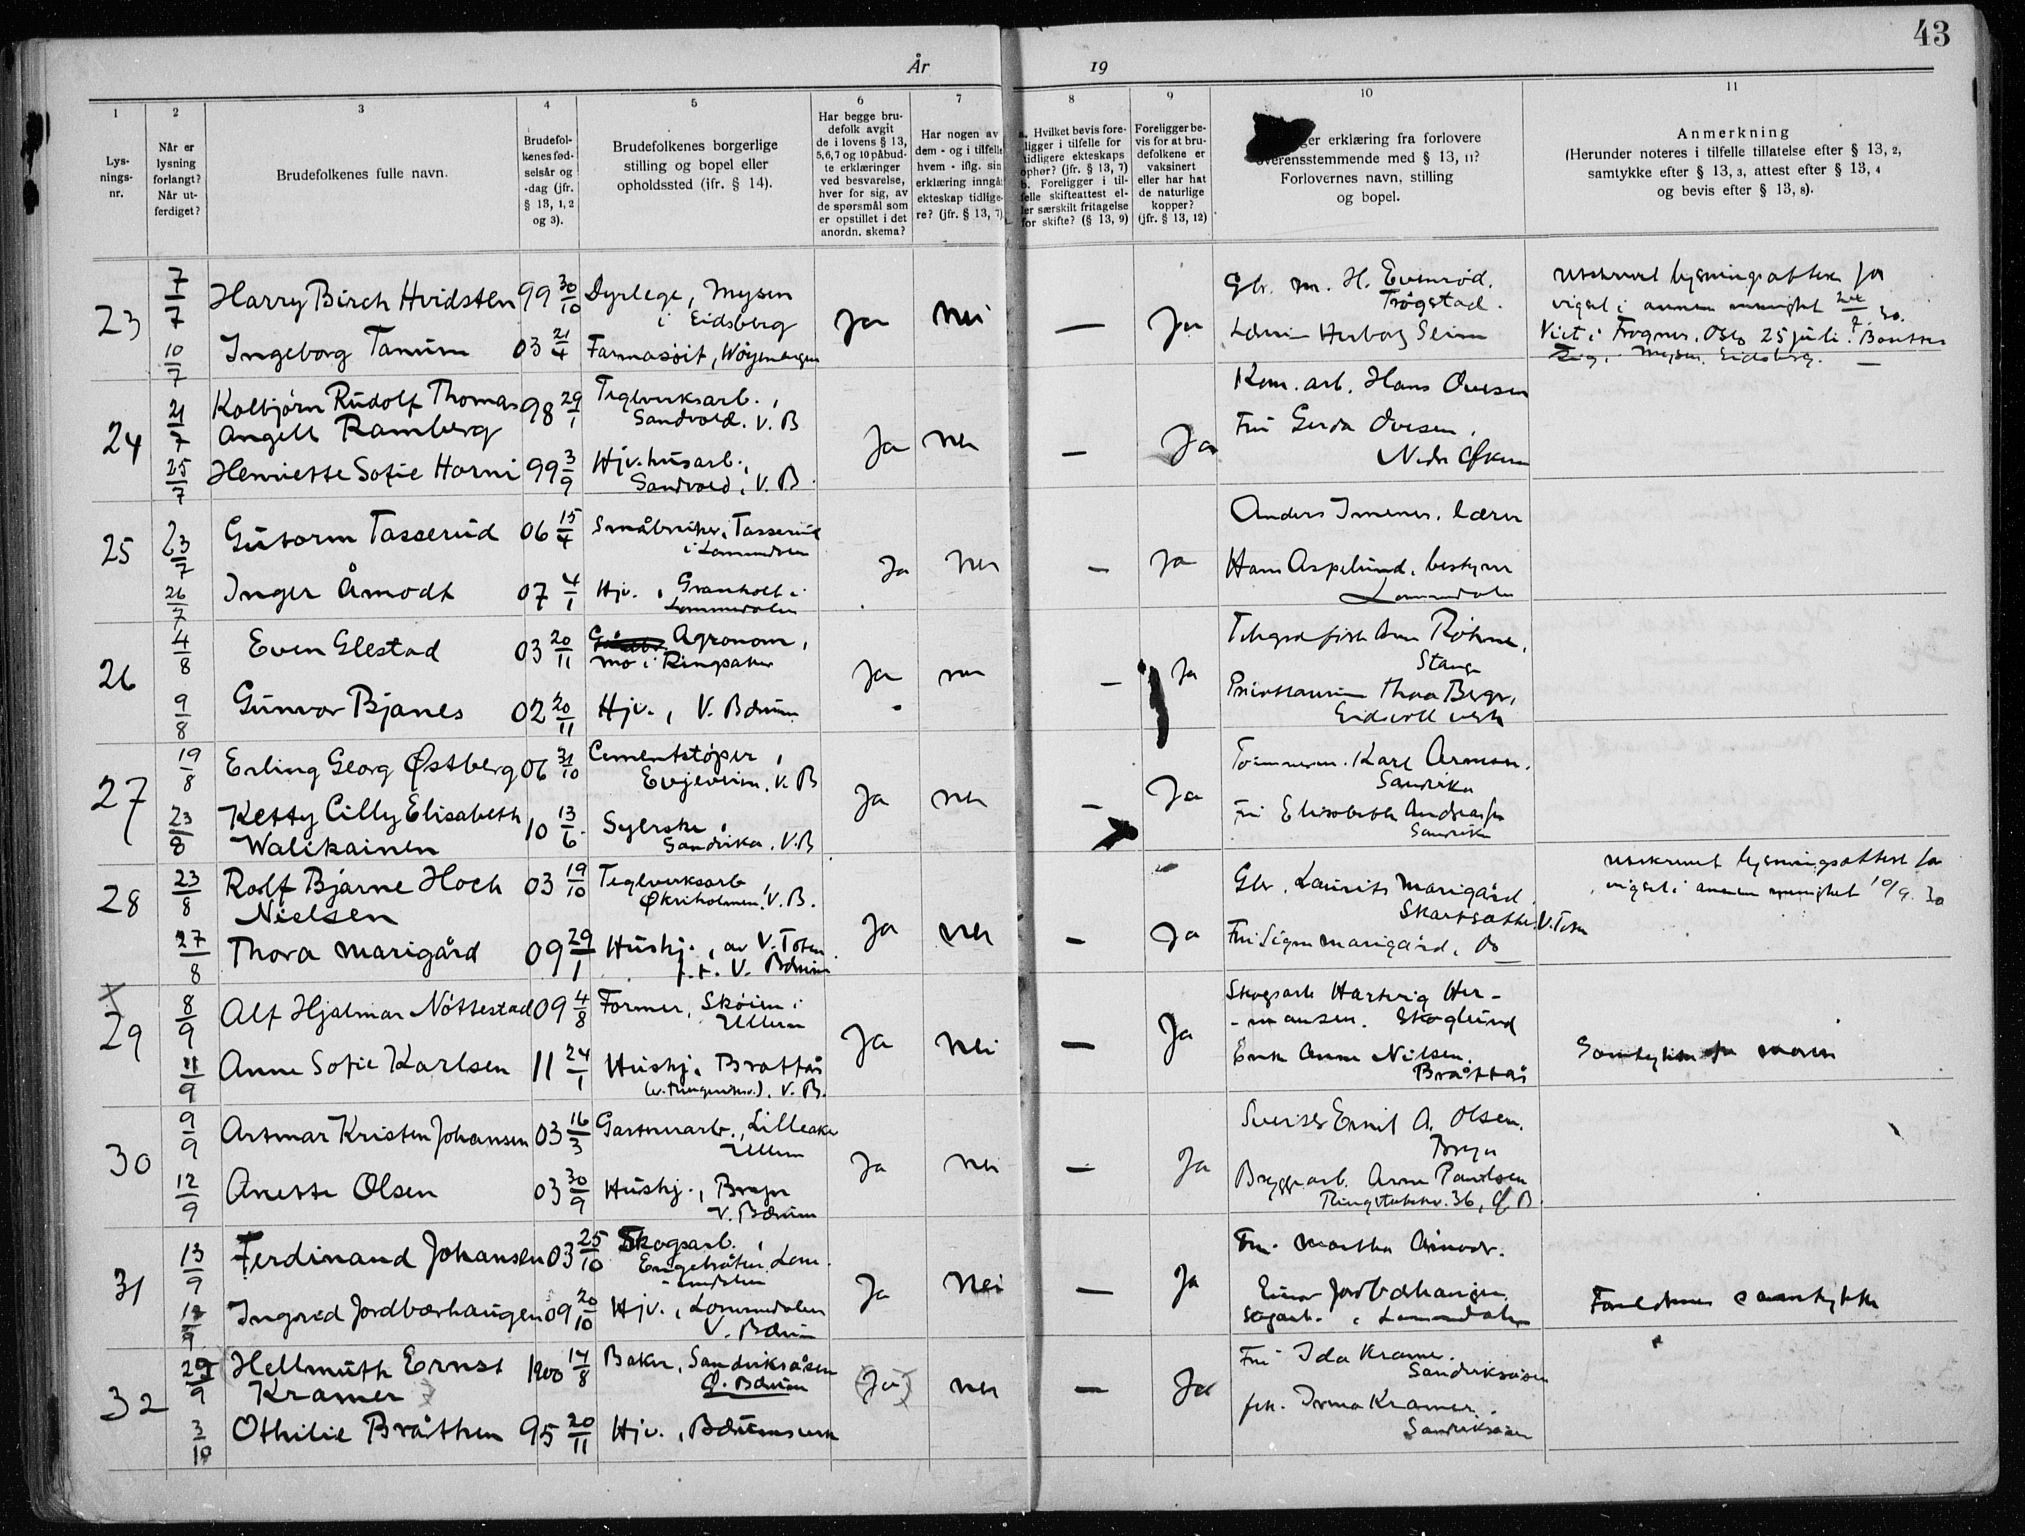 43
År 19
1
Lys-
nings-
nr.
2
Når er
lysning
forlangt?
Når ut-
ferdiget?
3
Brudefolkenes fulle navn.
4
Brudefol-
kenes fød-
selsår og
-dag (jfr.
§ 13, 1, 2
og 3).
5
Brudefolkenes borgerlige
stilling og bopel eller
opholdssted (jfr. § 14).
6
Har begge bru-
defolk avgit
de i lovens § 13,
5,6,7 og 10 påbud-
te erklæringer
ved besvarelse,
hver for sig, av
de spørsmål som
er opstillet i det
anordn. skema?
7
Har nogen av
dem - og i tilfelle
hvem - iflg. sin
erklæring inngå
ekteskap tidlige-
re? (jfr. § 13, 7)
8
a. Hvilket bevis fore-
ligger i tilfelle for
tidligere ekteskaps
ophør? (jfr. § 13, 7)
b. Foreligger i til-
felle skifteattest el-
ler særskilt fritagelse
for skifte? (§ 13, 9)
9
Foreligger be-
vis for at bru-
defolkene er
vaksinert
eller har hat
de naturlige
kopper?
(jfr. § 13, 12)
10
ger erklæring fra forlovere
overensstemmende med § 13, 11?
Forlovernes navn, stilling
og bopel.
11
Anmerkning
(Herunder noteres i tilfelle tillatelse efter § 13, 2,
samtykke efter § 13, 3, attest efter § 13, 4
og bevis efter § 13, 8).
23
7/7
10/7
Harry Birch Hvidsten 99 30/10 Dyrlege, Mysen
i Eidsberg
Ingeborg Tanum 03 21/4 Farmasøit,
Ja nei — Ja
Gbr. M. H.
Trøgstad.
Herborg Seim
Utskrevet lysningsattest for
vigsel i annen menighet
Viet i Frogner, Oslo 25 juli.
Mysen. Eidsberg. —
24
21/7
25/7
Kolbjørn Rudolf Thomas 98 29/1 Teglverksarb.,
Angell Ramberg Sandvold. V. B
Henriette Sofie Horni 99 3/9 Hjv. husarb.,
Sandvold, V. B.
Ja nei — Ja
Kom. arb. Hans Ovesen
Fru Gerda Ovesen,
25
23/7
26/7
Gutorm Tasserud 06 15/4 Småbruker, Tasserud
i Lommedalen
Inger Åmodt 07 4/1 Hjv., Granholt i
Lommedalen
Ja nei — Ja
Anders
Hans Aspelund, bestyrer
Lommedalen
26
4/8
9/8
Even Glestad 03 20/11 Agronom,
Mo i Ringsaker
Gunvor Bjanes 02 20/11 Hjv., V. Bærum
Ja nei — Ja
Stange
Eidsvoll verk
27
19/8
23/8
Erling Georg Østberg 06 31/10 Cementstøper,
Evjeveien, V. B
Ketty Cilly Elisabeth 10 13/6 Syerske,
Walikainen Sandvika, V. B
Ja nei — Ja
Tømmerm. Karl
Sandvika
Fru Elisabeth
Sandvika
28
23/8
27/8
Rolf Bjarne Hoch 03 19/10 Teglverksarb,
Nielsen Økriholmen, V. B.
Thora Marigård 09 29/1 Hushj., av V. Toten
p.t. V. Bærum
Ja nei — Ja
Gbr. Laurits Marigård.
V. Toten
Fru Signe Marigård, Do
Utskrevet lysningsattest for
vigsel i annen menighet 10/9. 30
29
8/9
11/9
Alf Hjalmar Nøttestad 09 4/8 Former, Skøien i
Ullern
Anne Sofie Karlsen 11 24/1 Hushj. Bråttås
V. B.
Ja nei — Ja
Skogsarb Hartvig Her-
-mansen. Skoglund
Enke Anne Nilsen.
Bråttås
Samtykke fra moren
30
9/9
12/9
Artmar Kristen Johansen 03 16/3 Gartnerarb., Lilleaker
Ullern
Anette Olsen 03 30/9 Hushj., Bryn
V. Bærum
Ja nei — Ja
Sveiser Emil A. Olsen.
Bryn
Bryggearb. Arne Paulsen
31
13/9
Ferdinand Johansen 03 25/10 Skogsarb.,
Engebråten, Lom-
-medalen
Ingrid Jordbærhaugen 09 20/10 Hjv., Lommedalen
V. Bærum
Ja nei — Ja
Fru Martha Åmodt.
Einar Jordbærhaugen,
sagarb., Lommedalen
Foreldrenes samtykke
32
29/9
3/10
Hellmuth Ernst 1900 14/8 Baker, Sandviksåsen
Kramer Ø. Bærum
Othilie Bråthen 95 20/11 Hjv., Bærumsverk
(Ja) nei — Ja
Fru Ida Kramer.
Sandviksåsen
frk. Irma Kramer.
Sandviksåsen